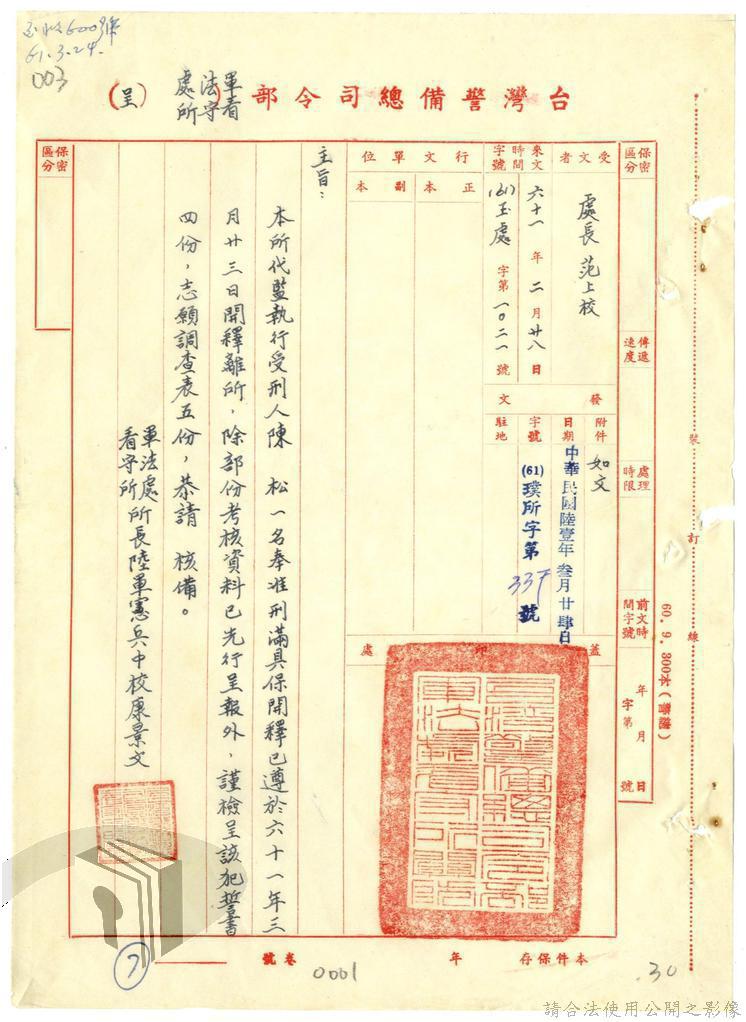 61.3.24.
003
台灣警備總司令部(軍法處看守所)(呈)
保密區分
傳遞速度
處理時限
前文時間字號
年 月 日
字第 號
受文者
處長 范上校
來文時間字號
六十一年二月廿八日
(61)玉處字第一〇二一號
行文單位
正本
副本
發文
附件
如文
日期
中華民國陸壹年叁月廿肆日
字號
(61)璞所字第337號
駐地
蓋印處
主旨:
本所代監執行受刑人陳 松一名奉准刑滿具保開釋已遵於六十一年三
月廿三日開釋離所,除部份考核資料已先行呈報外,謹檢呈該犯誓書
四份,志願調查表五份,恭請 核備。
軍法處看守所所長陸軍憲兵中校康景文
保密區分
裝訂線
60.9.300本(普議)
本件保存 年
卷號
0001
.30
7
請合法使用公開之影像